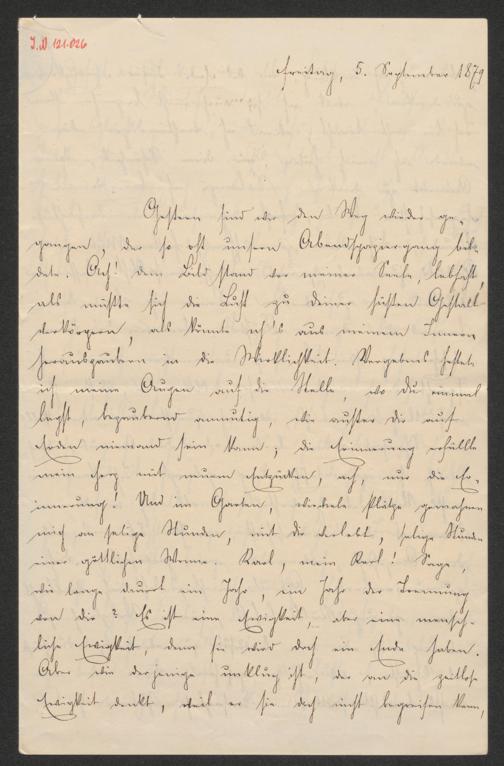 J.N. 121.026
Freitag, 5. September 1879
Gestern sind wir den Weg wieder ge-
gangen, der so oft unsern Abendspaziergang bil-
dete. Ach! dein Bild stand vor meiner Seele, lebhaft,
als müßte sich die Luft zu deiner süßen Gestalt
verkörpern, als könnte ich's aus meinem Innern
herauszaubern in die Wirklichkeit. Vergebens heftete
ich meine Augen auf die Stelle, wo du einmal
lagst, bezaubernd anmutig, wie außer dir auf
Erden niemand sein kann; die Erinnerung erfüllte
mein Herz mit neuem Entzücken, ach, nur die Er-
innerung! Und im Garten, wieviele Plätze gemahnen
mich an selige Stunden, mit dir verlebt, selige Stunden
einer göttlichen Wonne. Karl, mein Karl! Sage,
wie lange dauert ein Jahr, ein Jahr der Trennung
von dir? Es ist eine Ewigkeit, aber eine mensch-
liche Ewigkeit, denn sie wird doch ein Ende haben.
Aber wie derjenige unklug ist, der an die zeitlose
Ewigkeit denkt, weil er sie doch nicht begreifen kann,